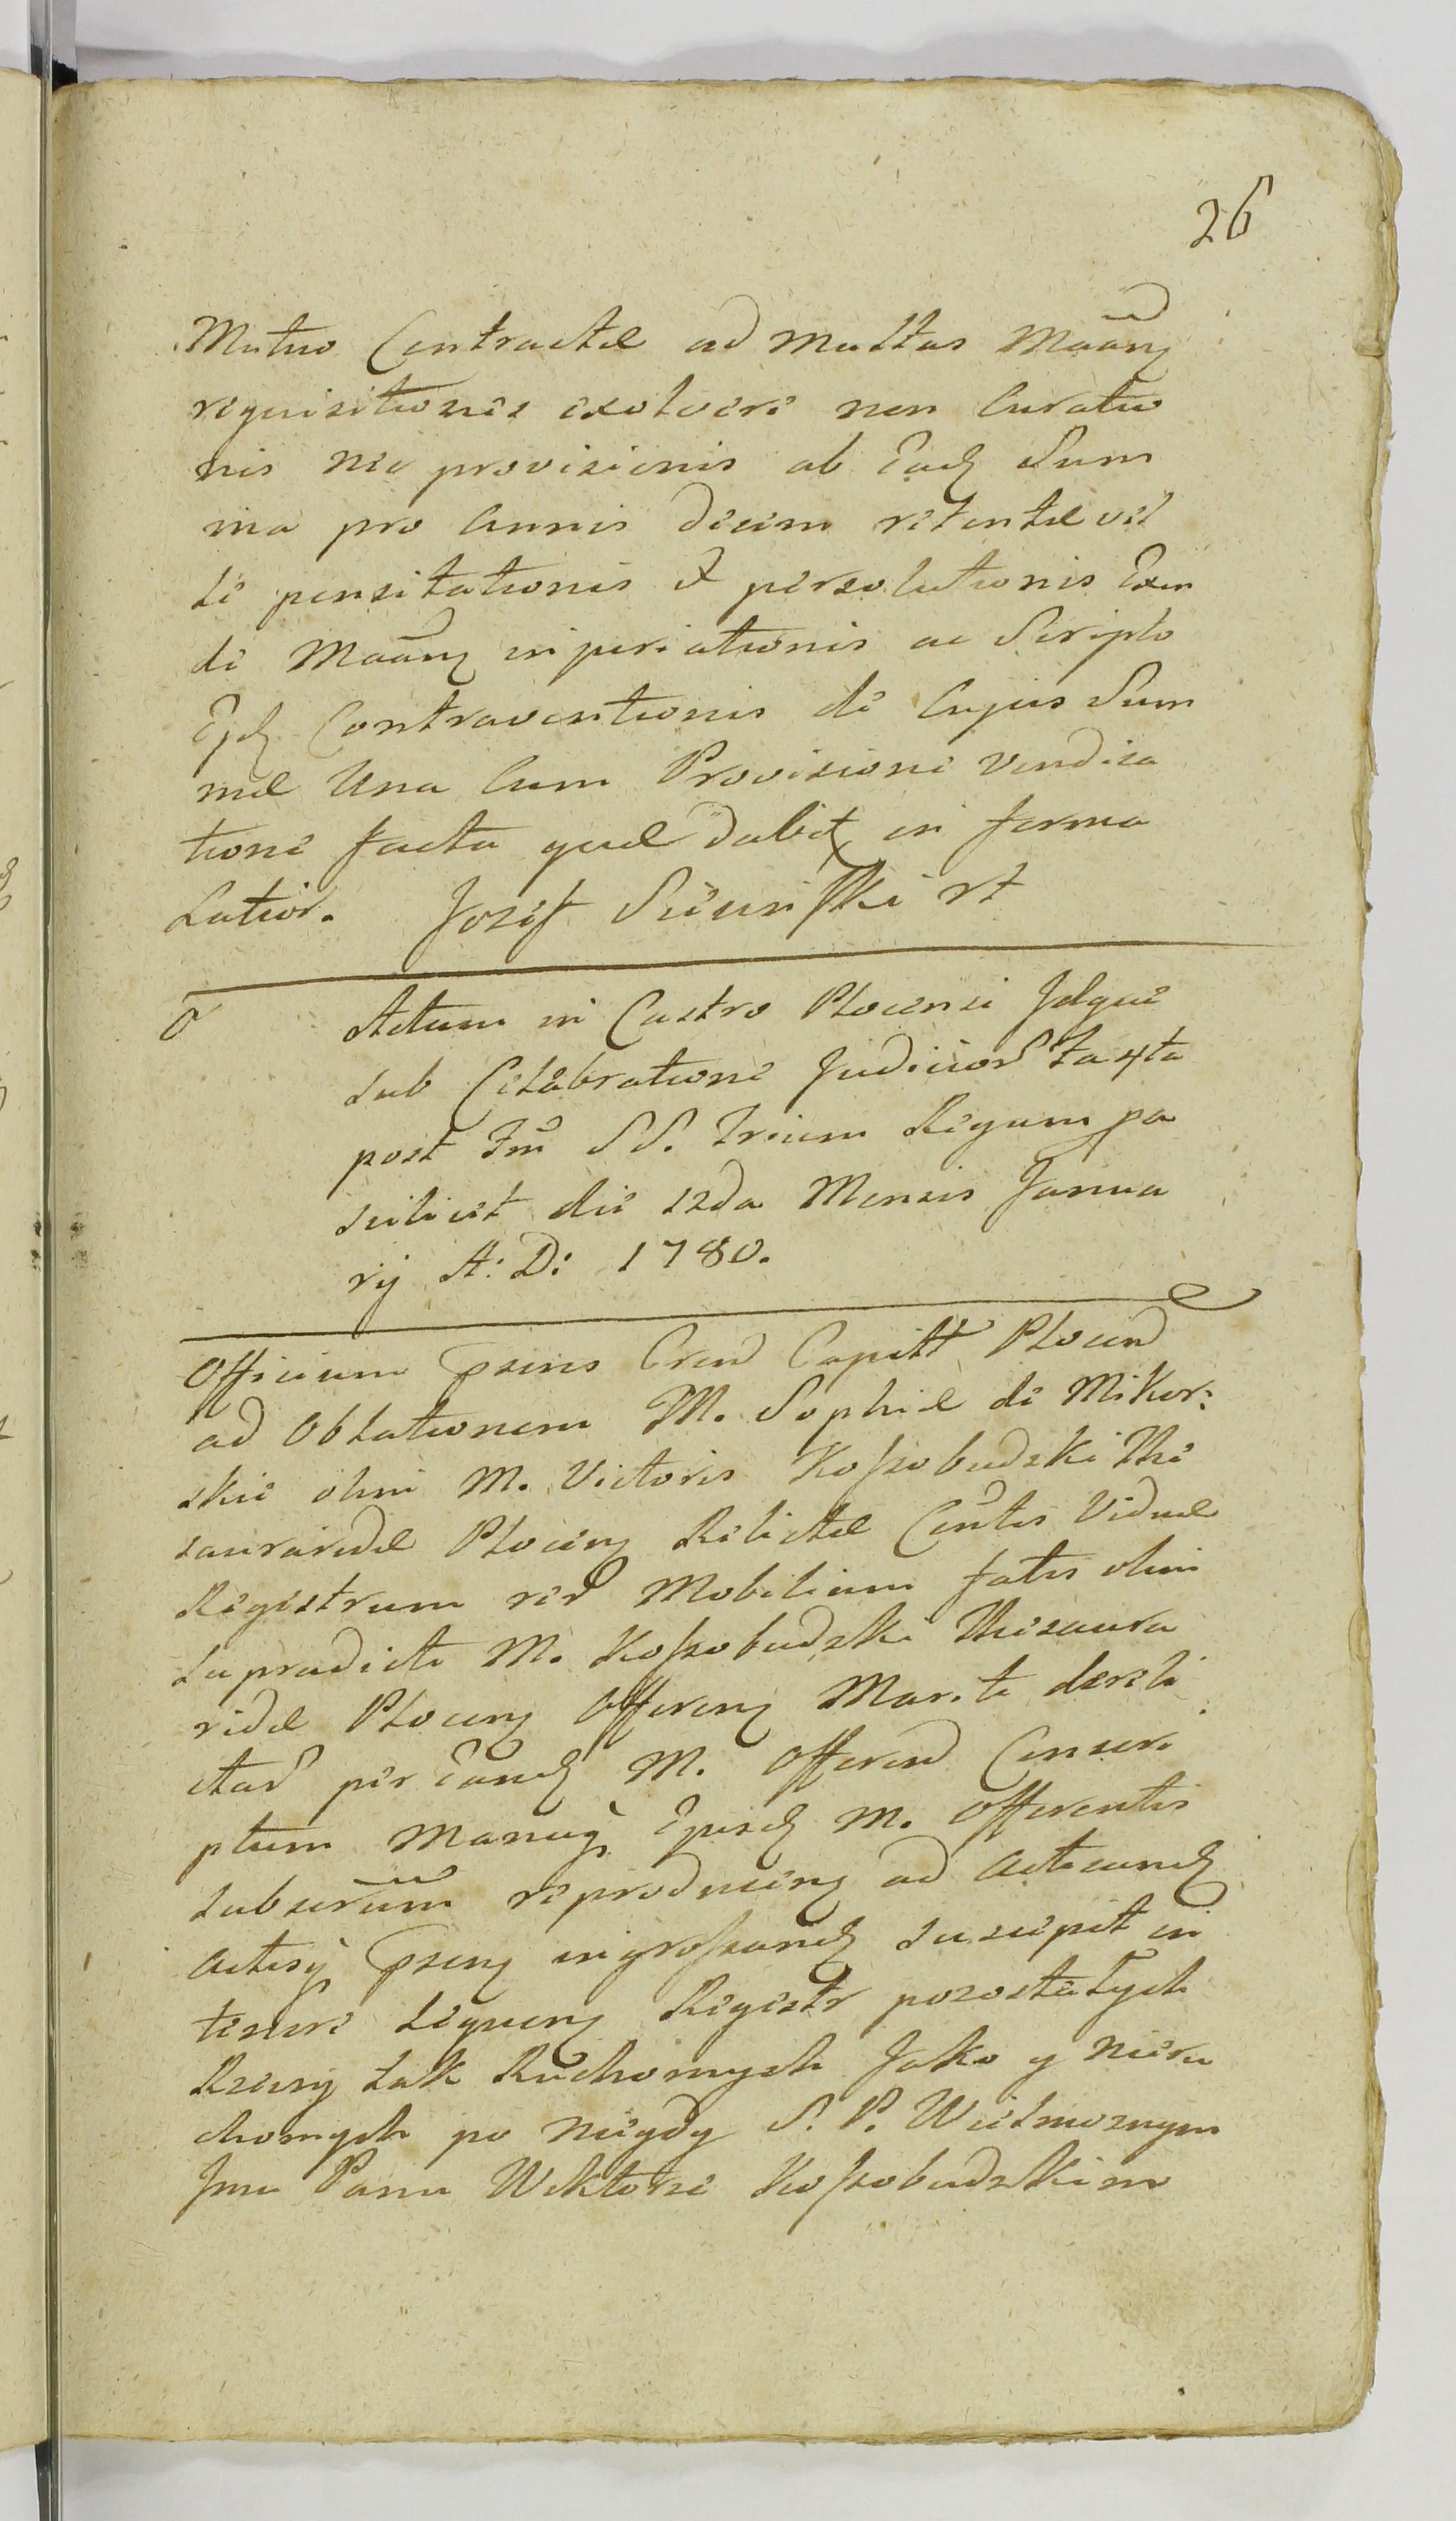 26
Mutuo Contractæ ad multas Maãnꝫ
requisitiones exolvere non Curatio
nis nec provisionis ab Eadꝫ Sum
ma pro Annis decem retentæ vel
le pensitationis et persolutionis Exin
de Maãnꝫ injuriationis ac Scripto
Ejdꝫ Contraventionis de Cujus Sum
mæ Una Cum Provisione vendica
tione facta quæ dabit in forma
Latior. Jozef Sieciński
Actum in Castro Plocensi Idque
sub Celebratione Judicior
post Fm̃ SS. Trium Regum pa
scilicet die 12da Mensis Janua
rij A: D: 1780.
Officium Crend Capitt Plocen
ad Oblationem M. Sophiæ de Mikor:
skie olim M. Victoris Koſsobudzki The
sauraridæ Plocenꝫ Relictæ Con̄tis Viduæ
Registrum rer Mobilium fatis olim
supradicti M. Koſsobudzki Thesaura
ridæ Plocenꝫ Offerenꝫ Mariti dereli
ctar per Eandꝫ M. Offeren Conscri
ptum Manuqꝫ Ejusdꝫ M. Offerentis
subscrũm reproducenꝫ ad acticandꝫ
actisqꝫ ingroſsandꝫ suscepit in
tenore sequenꝫ Regestr pozostałych
Rzeczy tak Ruchomych Jako y nieru
chomych po niegdy S. P. Wielmoznym
Jmci Panu Wiktorze Koſsobudzkim